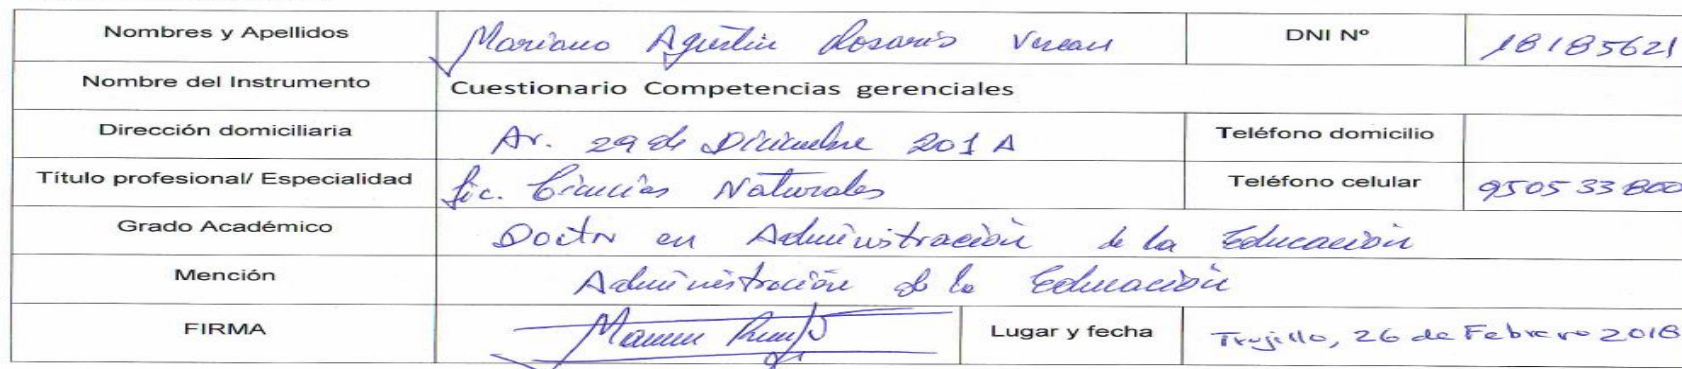 Nombres y Apellidos Mariano Agustin Rosario DNI Nº 18185621
Nombre del Instrumento Cuestionario Competencias gerenciales
Dirección domiciliaria Av. 29 de Diciembre 201 A Teléfono domicilio
Título profesional/ Especialidad Lic. Ciencias Naturales Teléfono celular 950533800
Grado Académico Doctor en Administración de la Educación
Mención Administración de la Educación
FIRMA Lugar y fecha Trujillo, 26 de Febrero 2018